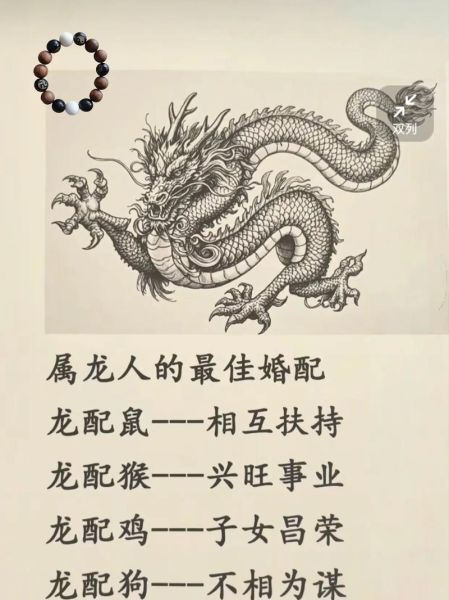 双列
属龙人的最佳婚配
龙配鼠---相互扶持
龙配猴---兴旺事业
龙配鸡---子女昌荣
龙配狗---不相为谋